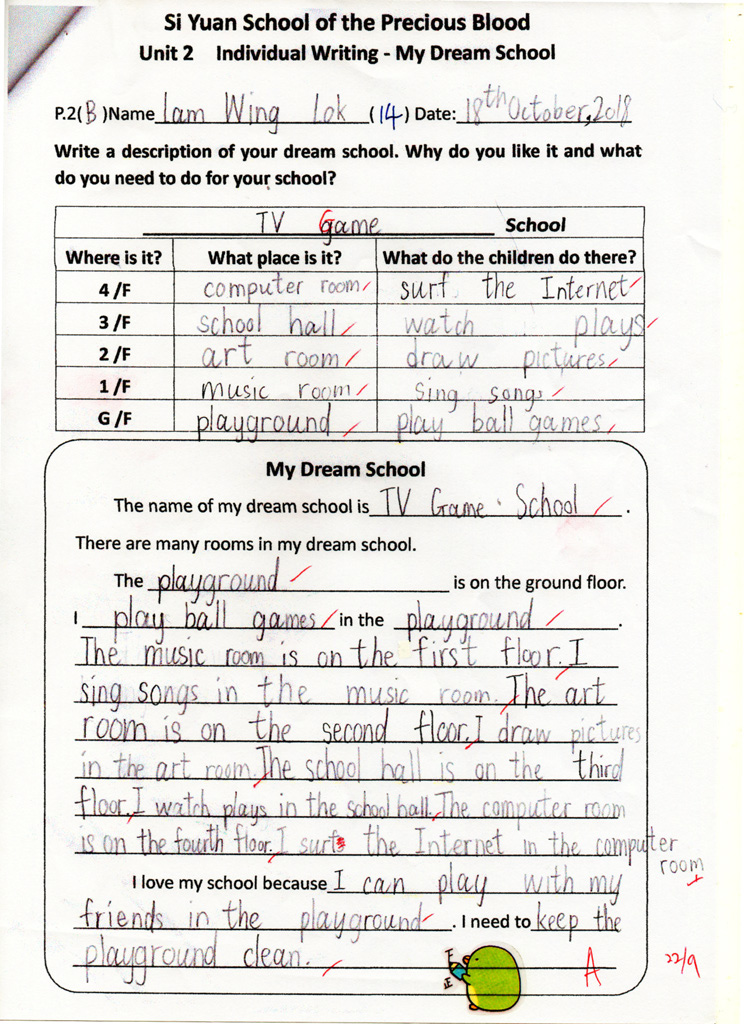 Si Yuan School of the Precious Blood
Unit 2 Individual Writing - My Dream School
P.2( B )Name Lam Wing Lok (14) Date: 18th October, 2018
Write a description of your dream school. Why do you like it and what
do you need to do for your school?
TV Game School
Where is it? What place is it? What do the children do there?
4 /F computer room surf the Internet
3 /F school hall watch plays
2 /F art room draw pictures
1 /F music room sing songs
G /F playground play ball games
My Dream School
The name of my dream school is TV Game School .
There are many rooms in my dream school.
The playground is on the ground floor.
I play ball games in the playground .
The music room is on the first floor. I
sing songs in the music room. The art
room is on the second floor. I draw pictures
in the art room. The school hall is on the third
floor. I watch plays in the school hall. The computer room
is on the fourth floor. I surf the Internet in the computer
room
I love my school because I can play with my
friends in the playground . I need to keep the
playground clean.
A 22/9